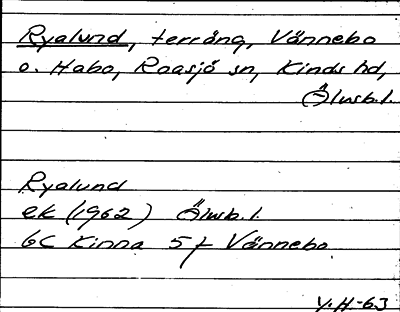 Ryalund, terräng, Vännebo
o. Habo, Roasjö sn, Kinds hd,
Älvsb.l.
Ryalund
ek (1962) Älvsb.l.
6C Kinna 5f Vännebo
Y.H.-63